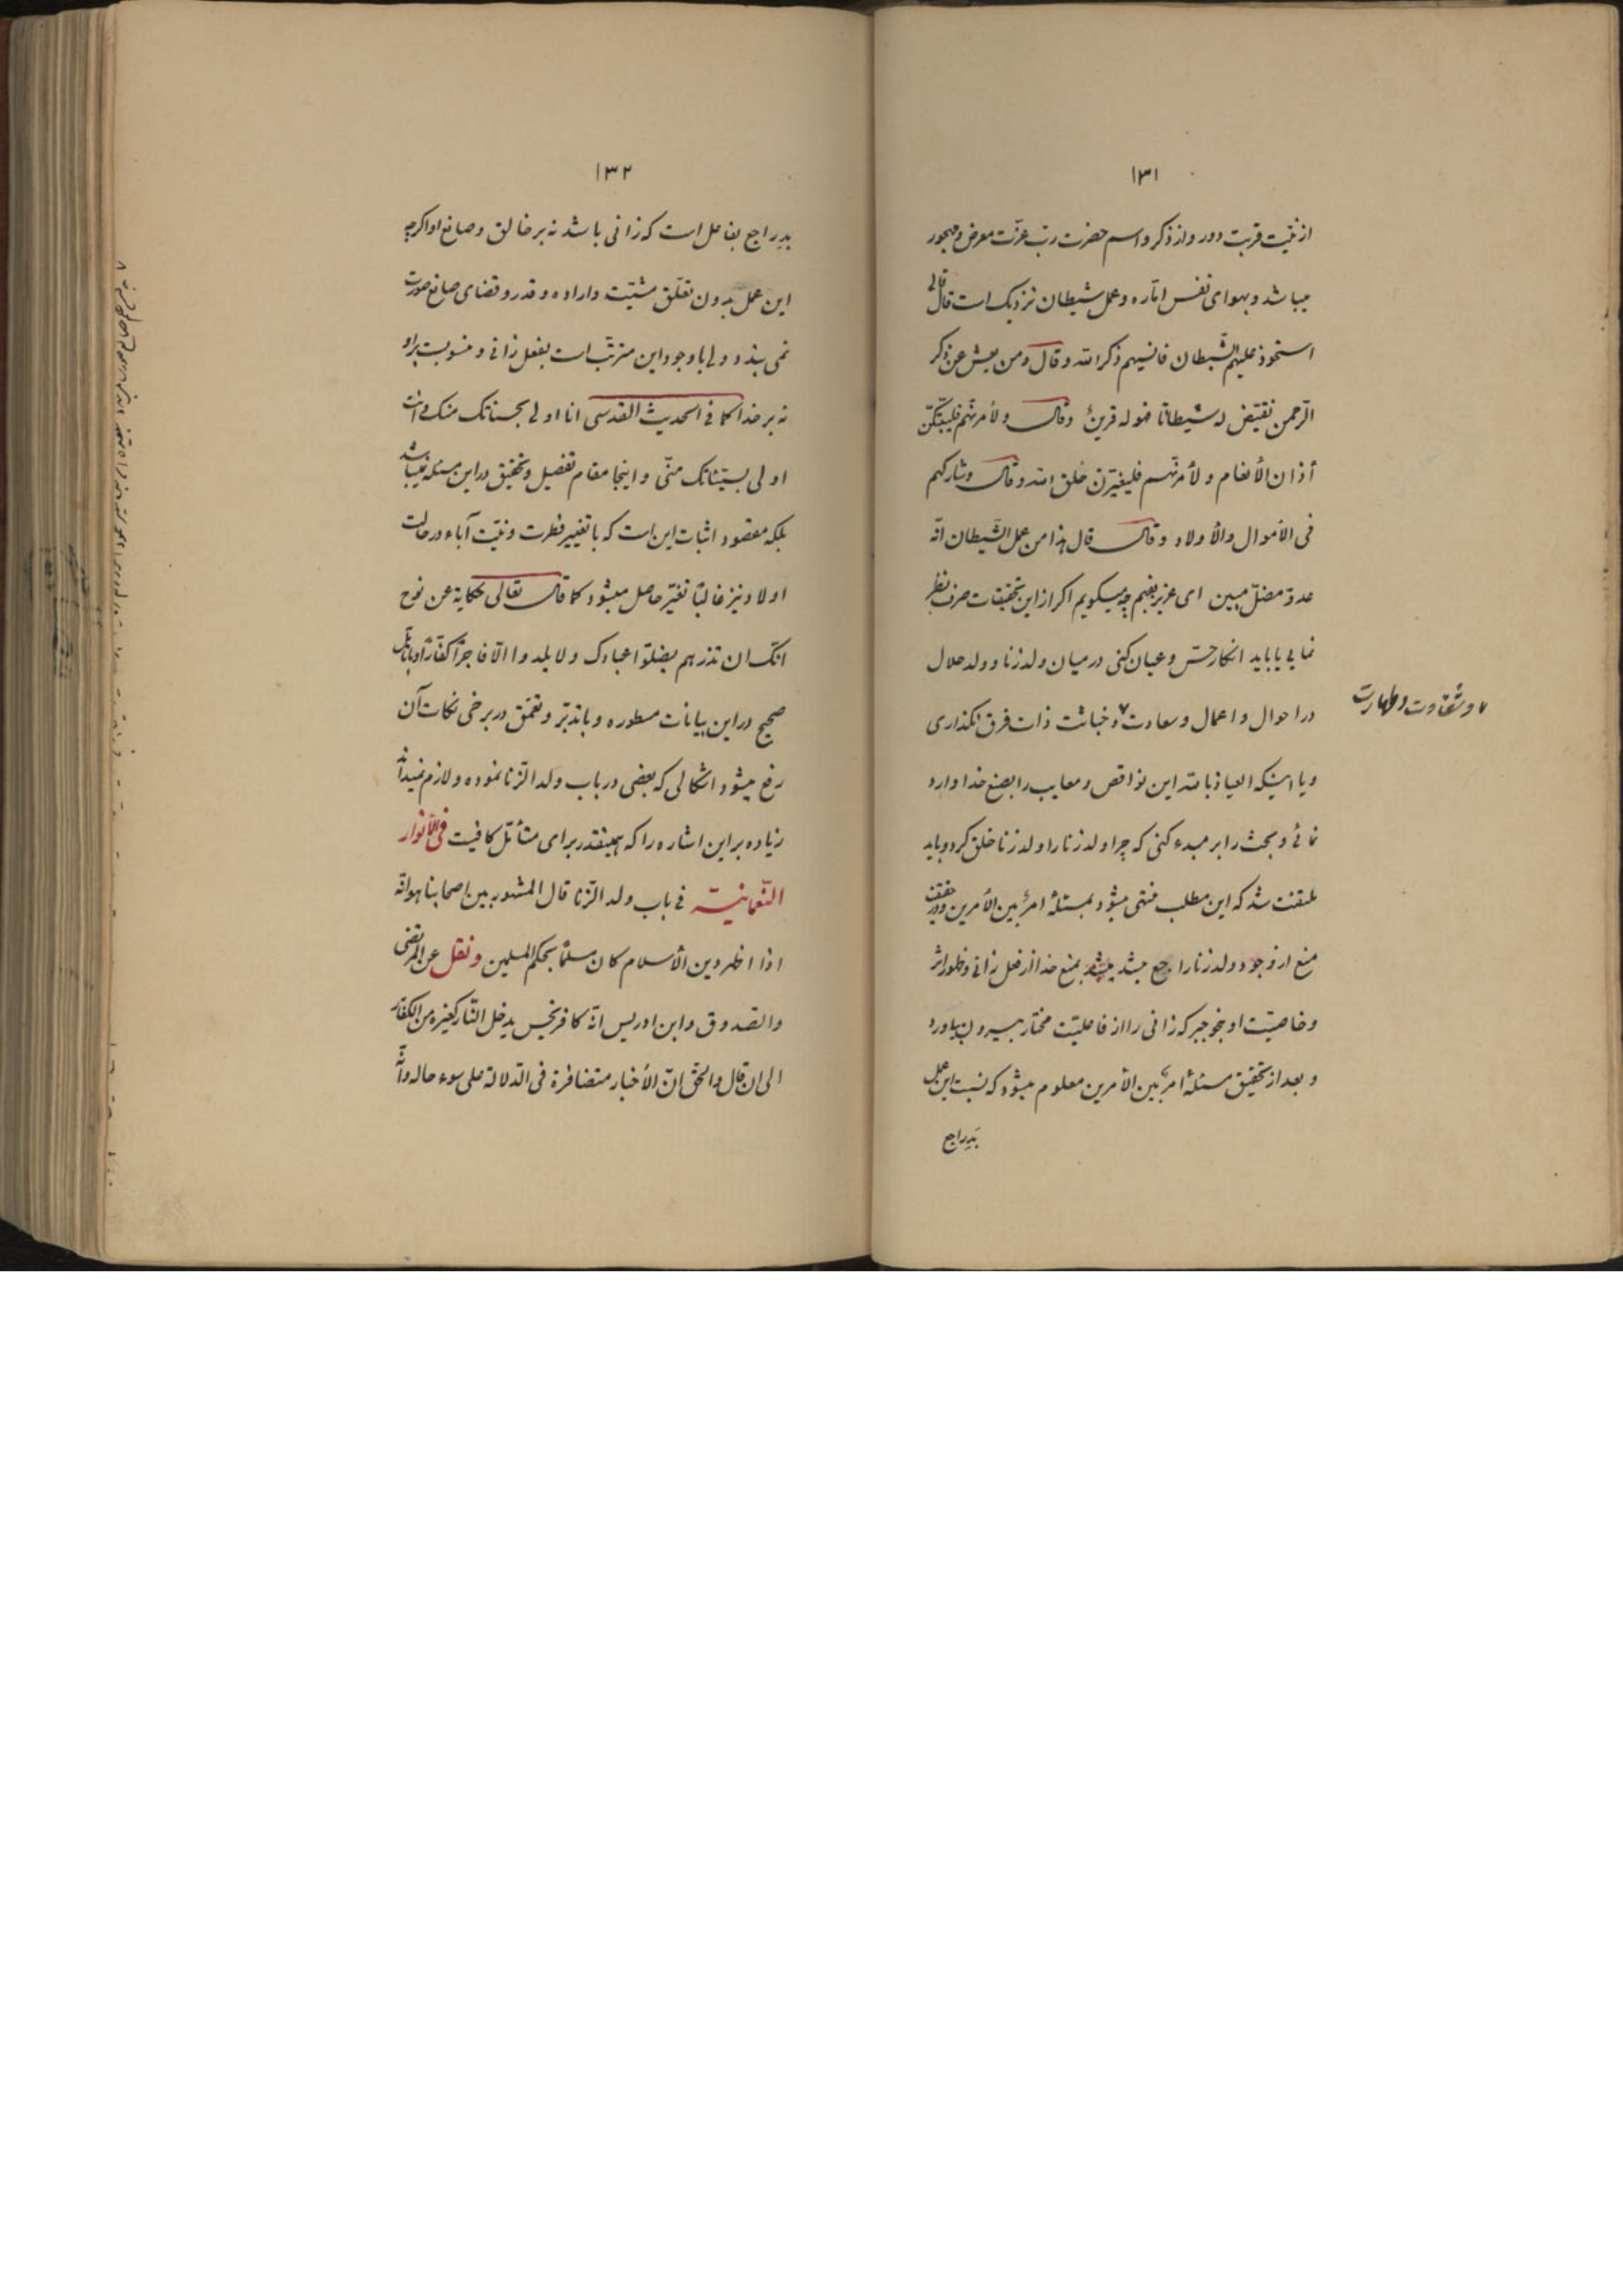 ۱۳۱
از نیّت قربت دور و از ذکر و اسم حضرت ربّ عزّت معرض و مهجور
میباشد و بهوای نفس امّاره و عمل شیطان نزدیک است قال تعالی
استحوذ علیهم الشّیطان فانسیهم ذکر الله و قال و من یعش عن ذکر
الرّحمن نقیّض له شیطانا فهو له قرینٌ و قال و لأمرنّهم فلیبتّکنّ
أذان الأنعام و لأمرنّهم فلیغیّرنّ خلق الله و قال و شارکهم
فی الأموال والأولاد و قال قال هذا من عمل الشّیطان انّه
عدوّ مضلّ مبین ای عزیز بفهم چه میگویم اکر از این تحقیقات صرف نظر
نمایی یا باید انکار حسّ و عیان کنی در میان ولد زنا و ولد حلال
در احوال و اعمال و سعادت و خباثت ذات فرق نگذاری
و شقاوت و طهارت
و یا اینکه العیاذ بالله این نواقص و معایب را بصنع خدا وارد
نمائی و بحث را بر مبدء کنی که چرا ولد زنا را ولد زنا خلق کرد و باید
ملتفت شد که این مطلب منتهی میشود بمسئلهٔ امرٌ بین الأمرین و در حقیقت
منع از وجود ولد زنا راجع میشد بمنع خدا از فعل زانی و ظهور اثر
و خاصیّت او بنحو جبر که زانی را از فاعلیّت مختار بیرون بیاورد
و بعد از تحقیق مسئلهٔ امرٌ بین الأمرین معلوم میشود که نسبت این عمل
بَدِ راجع
۱۳۲
بدِ راجع بفاعل است که زانی باشد نه بر خالق و صانع او اکرچه
این عمل بدون تعلّق مشیّت و اراده و قدر و قضای صانع صورت
نمی بندد ولی باوجود این مترتّب است بفعل زانی و منسوبست بر او
نه بر خدا کما فی الحدیث القدسی انا اولی بحسناتک منک و انت
اولی بسیّئاتک منّی و اینجا مقام تفصیل و تحقیق در این مسئله نمیباشد
بلکه مقصود اثبات این است که با تغییر فطرت و نیّت آباء در حالت
اولاد نیز غالبًا تغیّر حاصل میشود کما قال تعالی حکایة عن نوح
انّک ان تذرهم یضلّوا عبادک و لا یلدوا الّا فاجرًا کفّارًا و با تأمّل
صحیح در این بیانات مسطوره و با تدبّر و تعمّق در برخی نکات آن
رفع میشود اشکالی که بعضی در باب ولد الزّنا نموده و لازم نمیدانم
زیاده بر این اشاره را که همینقدر برای متأمّل کافیست فی الأنوار
النّعمانیّة فی باب ولد الزّنا قال المشهور بین اصحابنا هو انّه
اذا اظهر دین الأسلام کان مسلمًا بحکم المسلمین و نقل عن المرتضی
والصّدوق و ابن ادریس انّه کافر نجس یدخل النّار کغیره من الکفّار
الی ان قال والحقّ انّ الأخبار متضافرة فی الدّلالة علی سوء حاله و انّه